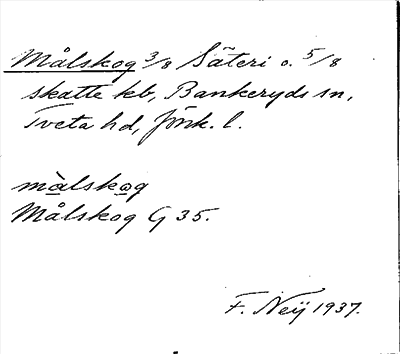 Målskog 3/8 Säteri o. 5/8
skatte kb, Bankeryds sn,
Tveta hd, Jönk. l.
màlskog
Målskog G 35.
F. Neij 1937.